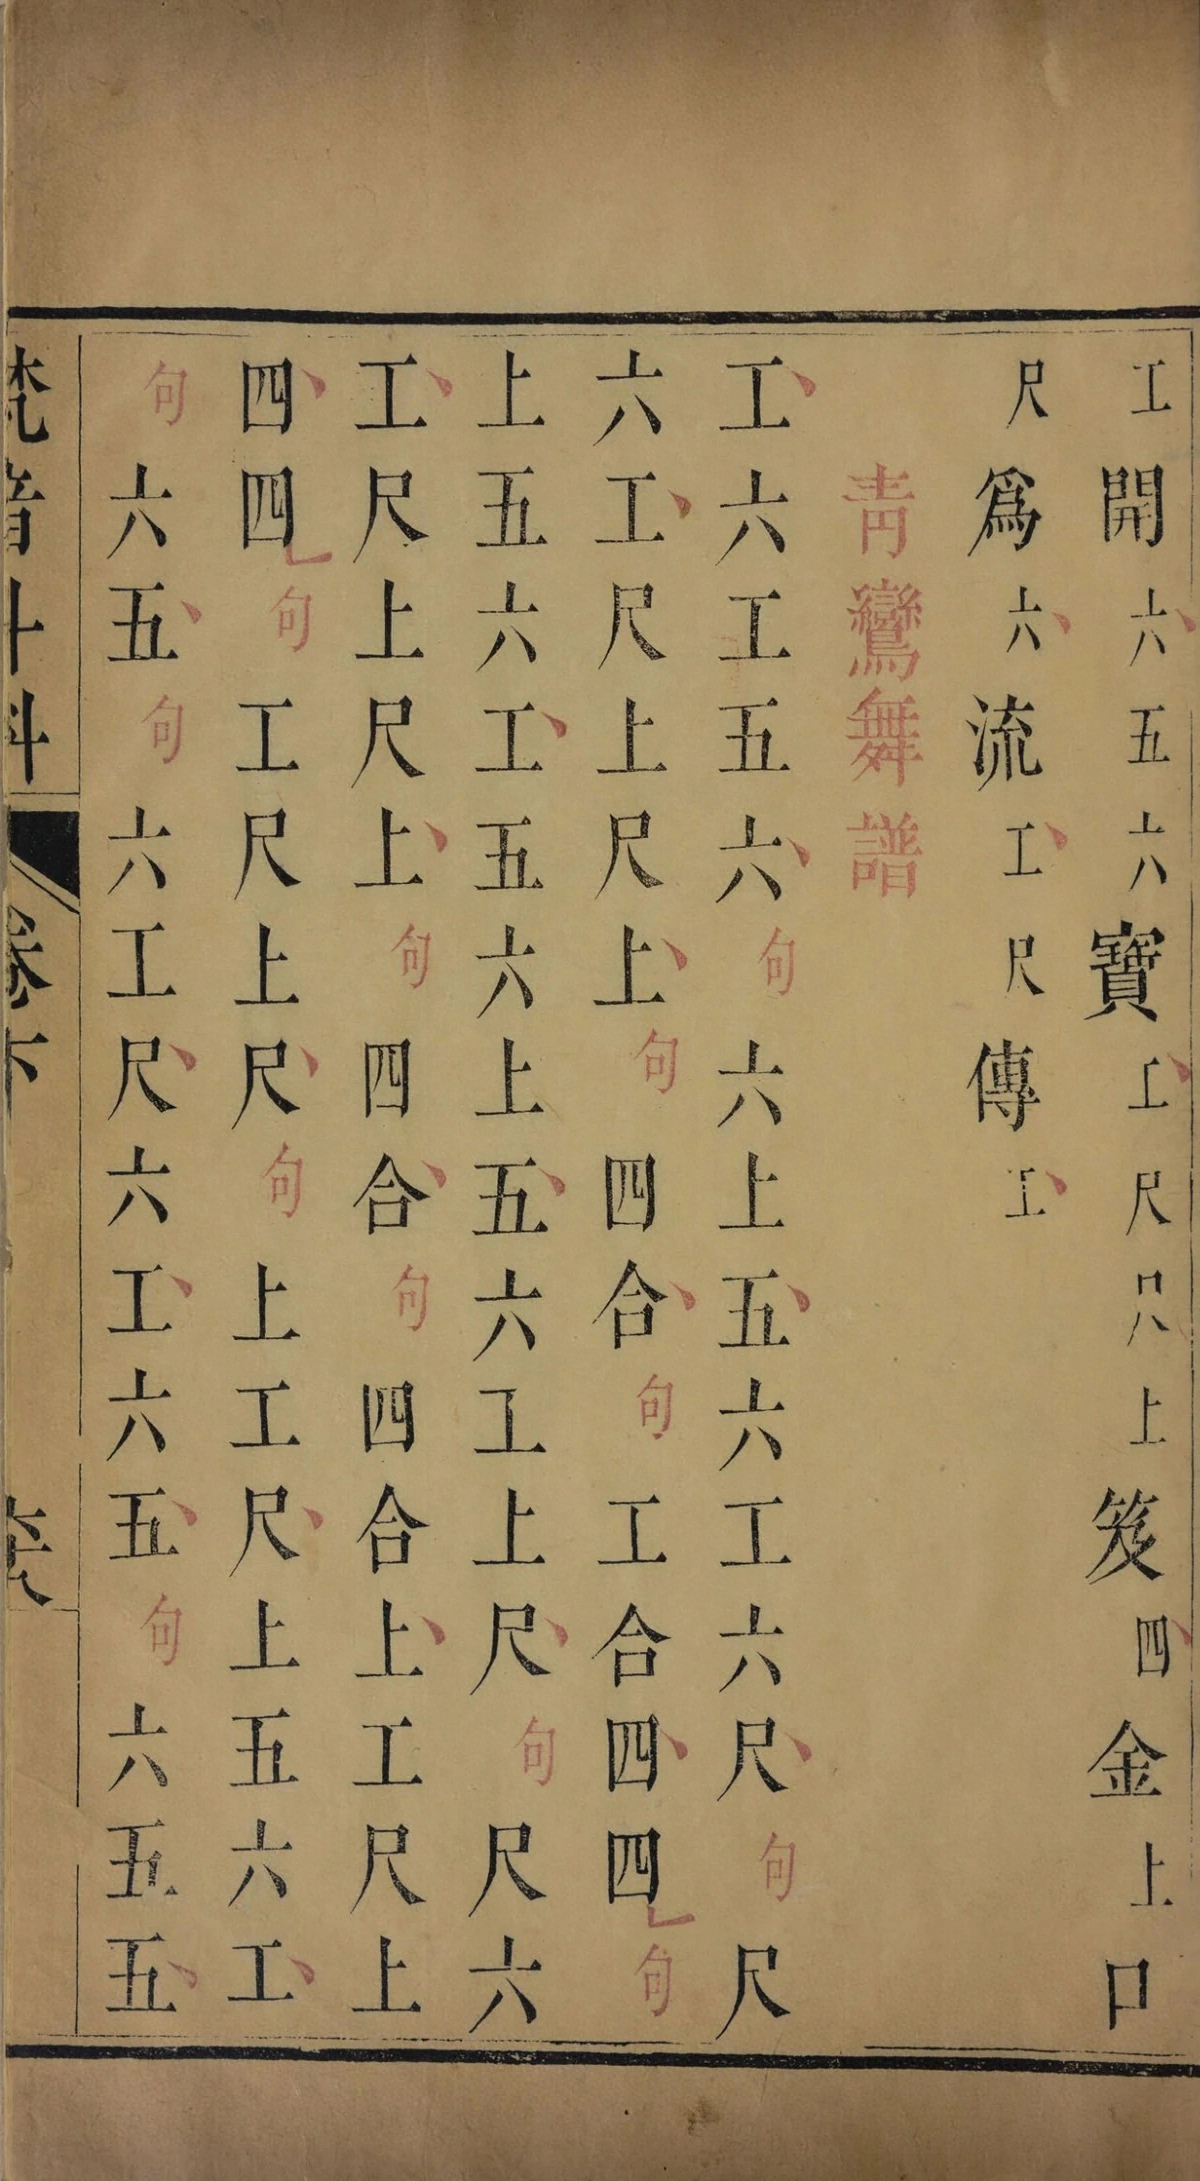 工開六五六寶工尺尺上笈四金上口
尺爲六流工尺傳工
靑鸞舞譜
工六工五六句六上五六工六尺句尺
六工尺上尺上句四合句工合四四句
上五六工五六上五六工上尺句尺六
工尺上尺上句四合句四合上工尺上
四四句工尺上尺句上工尺上五六工
句六五句六工尺六工六五句六五五
梵音斗科 卷下